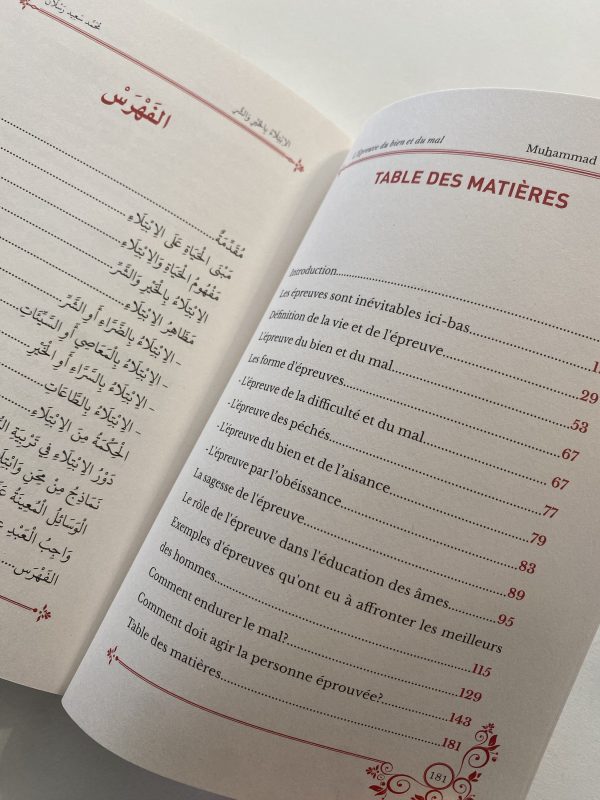 محمد سعيد رسلان
الِابْتِلَاءُ بِالْخَيْرِ وَالشَّرِّ
الفَهْرَسْ
مُقَدِّمَةٌ
مَبْنَى الْحَيَاةِ عَلَى الِابْتِلَاءِ
مَفْهُومُ الْحَيَاةِ وَالِابْتِلَاءِ
الِابْتِلَاءُ بِالْخَيْرِ وَالشَّرِّ
مَظَاهِرُ الِابْتِلَاءِ
- الِابْتِلَاءُ بِالضَّرَّاءِ أَوِ الشَّرِّ
- الِابْتِلَاءُ بِالْمَعَاصِي أَوِ السَّيِّئَاتِ
- الِابْتِلَاءُ بِالسَّرَّاءِ أَوِ الْخَيْرِ
- الِابْتِلَاءُ بِالطَّاعَاتِ
الْحِكْمَةُ مِنَ الِابْتِلَاءِ
دَوْرُ الِابْتِلَاءِ فِي تَرْبِيَةِ
نَمَاذِجُ مِنْ مِحَنِ
الْوَسَائِلُ الْمُعِينَةُ
وَاجِبُ الْعَبْدِ
الفَهْرَس
L'épreuve du bien et du mal
Muhammad
TABLE DES MATIÈRES
Introduction
Les épreuves sont inévitables ici-bas
Définition de la vie et de l'épreuve 29
L'épreuve du bien et du mal 53
Les forme d'épreuves 67
-L'épreuve de la difficulté et du mal 67
-L'épreuve des péchés 77
-L'épreuve du bien et de l'aisance 79
-L'épreuve par l'obéissance 83
La sagesse de l'épreuve 89
Le rôle de l'épreuve dans l'éducation des âmes 95
Exemples d'épreuves qu'ont eu à affronter les meilleurs
des hommes 115
Comment endurer le mal? 129
Comment doit agir la personne éprouvée? 143
Table des matières 181
181